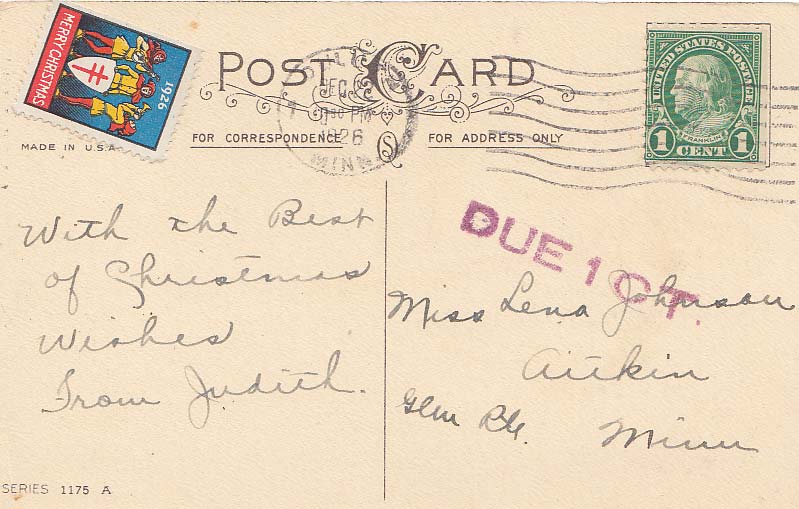 MERRY CHRISTMAS
1926
POST CARD
UNITED STATES POSTAGE
FRANKLIN
1 CENT 1
DEC
1 30 PM
1926
MINN
FOR CORRESPONDENCE
FOR ADDRESS ONLY
MADE IN U.S.A.
DUE 1 CT.
With the Best
of Christmas
Wishes
From Judith.
Miss Lena Johnson
Aitkin
Glen Rte.
Minn
SERIES 1175 A